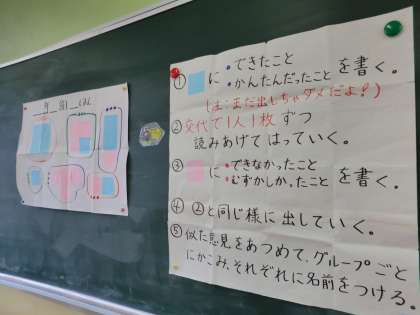 年 組 班
① に ・できたこと
・かんたんだったこと を書く。
(まだ出しちゃダメだよ!)
② 交代で1人1枚ずつ
読みあげてはっていく。
③ に ・できなかったこと
・むずかしかったこと を書く。
④ ②と同じ様に出していく。
⑤ 似た意見をあつめて、グループごと
にかこみ、それぞれに名前をつける。